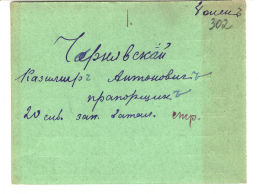 302
Чернявскій
Казимиръ Антоновичъ
прапорщикъ
20 сиб. зап. батал. стр.